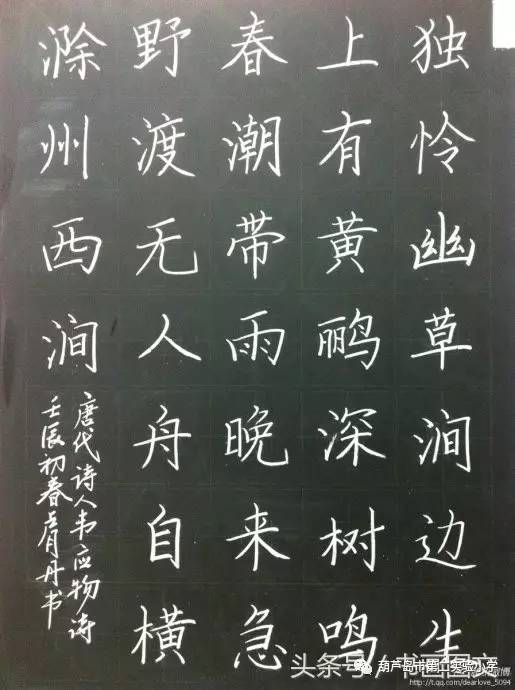 独怜幽草涧边生
上有黄鹂深树鸣
春潮带雨晚来急
野渡无人舟自横
滁州西涧
唐代诗人韦应物诗
壬辰初春肖丹书
http://t.qq.com/dearlove_5094